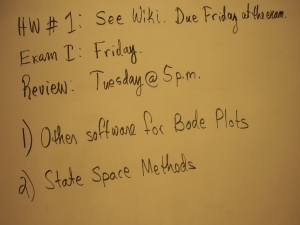 HW #1: See Wiki. Due Friday at the exam.
Exam I: Friday.
Review: Tuesday @ 5p.m.
1) Other software for Bode Plots
2) State Space Methods